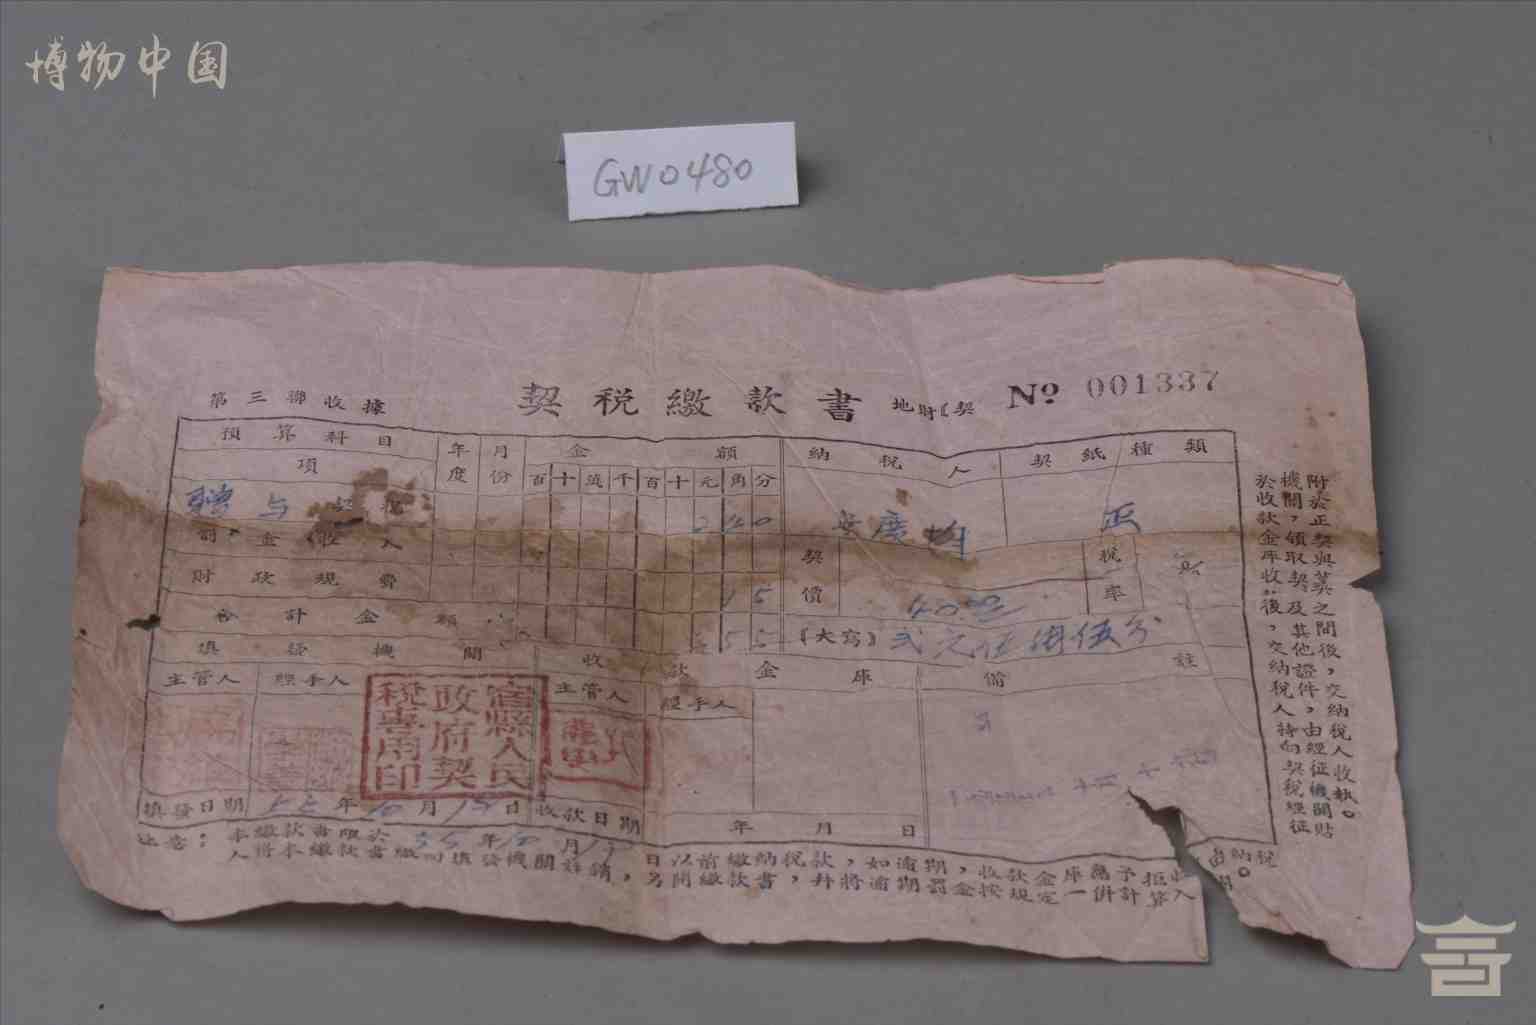 博物中国
GW0480
第三聯收據 契税繳款書 地財(契 No 001337
預算科目 年度 月份 金額 納税人 契紙種類
項 百十萬千百十元角分
贈与 2 40 廣均 正
罰金收入 契價 税率
財政規費 15 40.00
合計金額 55 (大寫) 弍元伍角伍分
填發機關 收款金庫 備註
主管人 經手人 主管人 經手人
宿縣人民政府契税專用印
代
填發日期 55年10月1 日 收款日期 年 月 日
注意：本繳款書限於55年10月1 日以前繳納税款，如逾期，收款金庫應予拒收
人將本繳款書繳回填發機關註銷，另開繳款書，并將逾期罰金按規定一併計算
附於正契與草契之間後，交納税人收執。
機關，領取契及其他證件，由經征機關貼
於收款金庫收後，交納税人持向契税經征